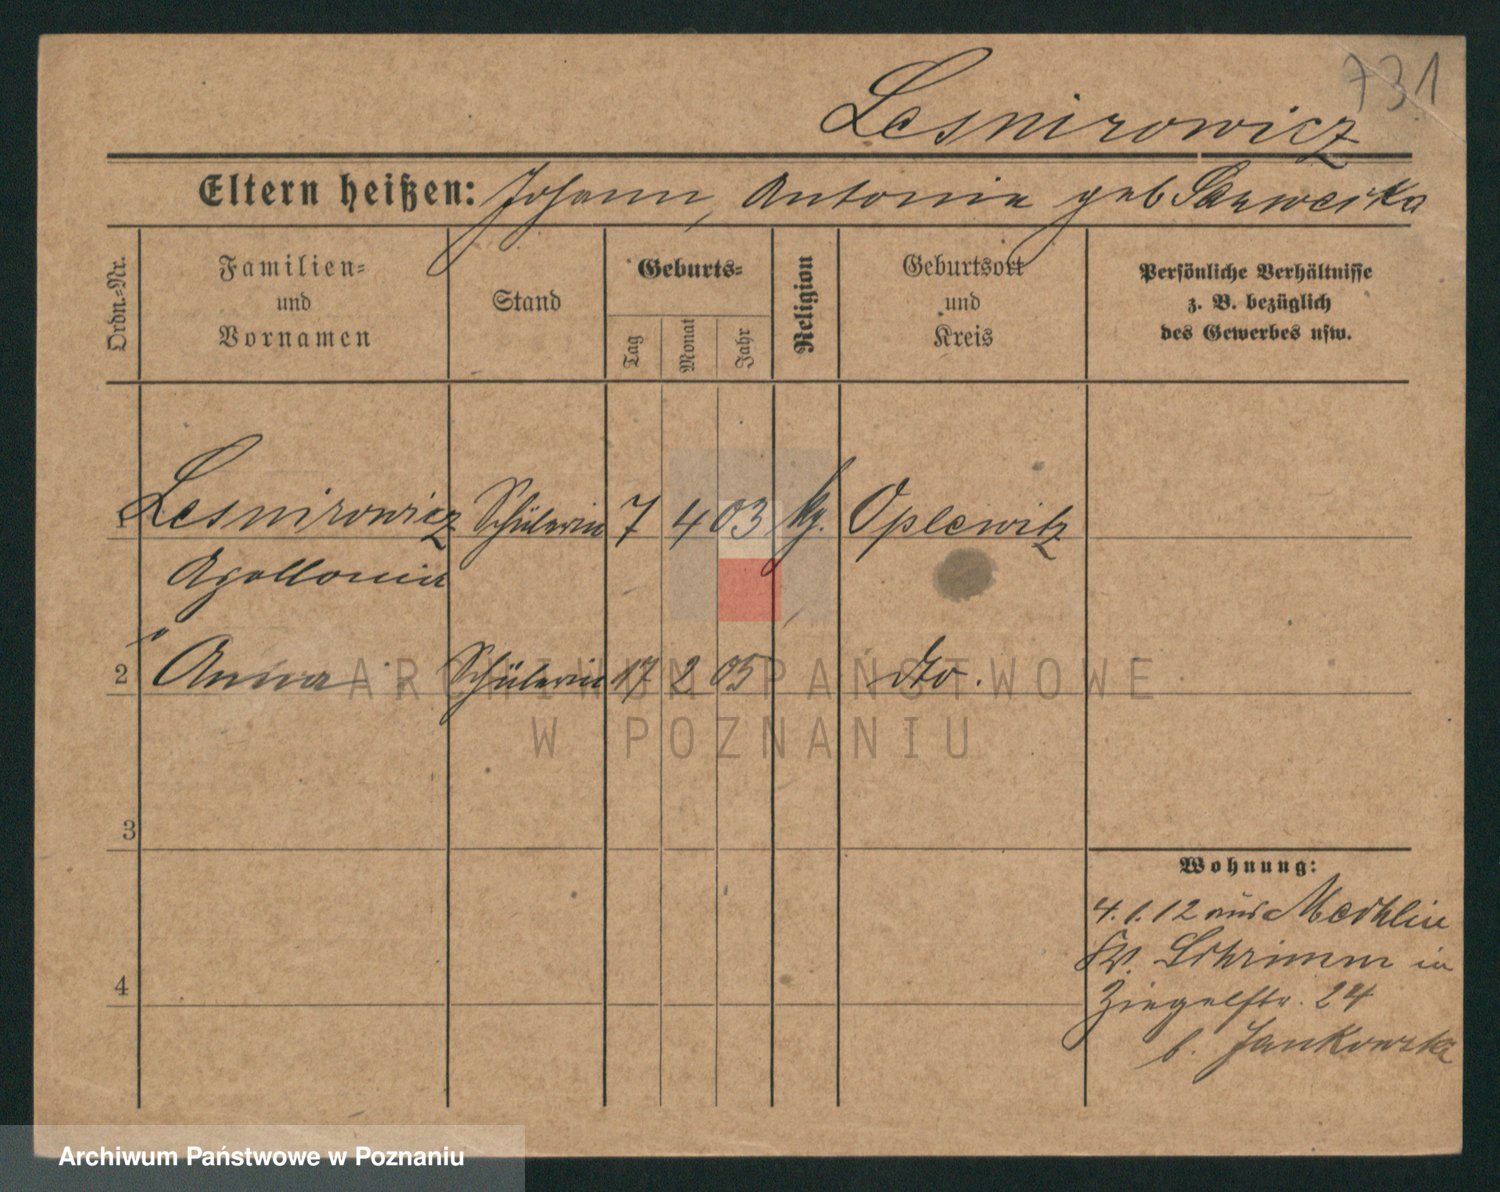 731
Lesnirowicz
Eltern heißen: Johann, Antonie geb
Ordn.=Nr.
Familien=
und
Vornamen
Stand
Geburts=
Tag
Monat
Jahr
Religion
Geburtsort
und
Kreis
Persönliche Verhältnisse
z. B. bezüglich
des Gewerbes usw.
1 Lesnirowicz Schülerin 7 4 03 kg. Oplewitz
Apollonia
"
2 Anna Schülerin 17 2 05 dto.
ARCHIWUM PAŃSTWOWE
W POZNANIU
3
4
Wohnung:
4.1.12 aus Mechlin
Schrimm in
Ziegelstr. 24
b. Jankowska
Archiwum Państwowe w Poznaniu